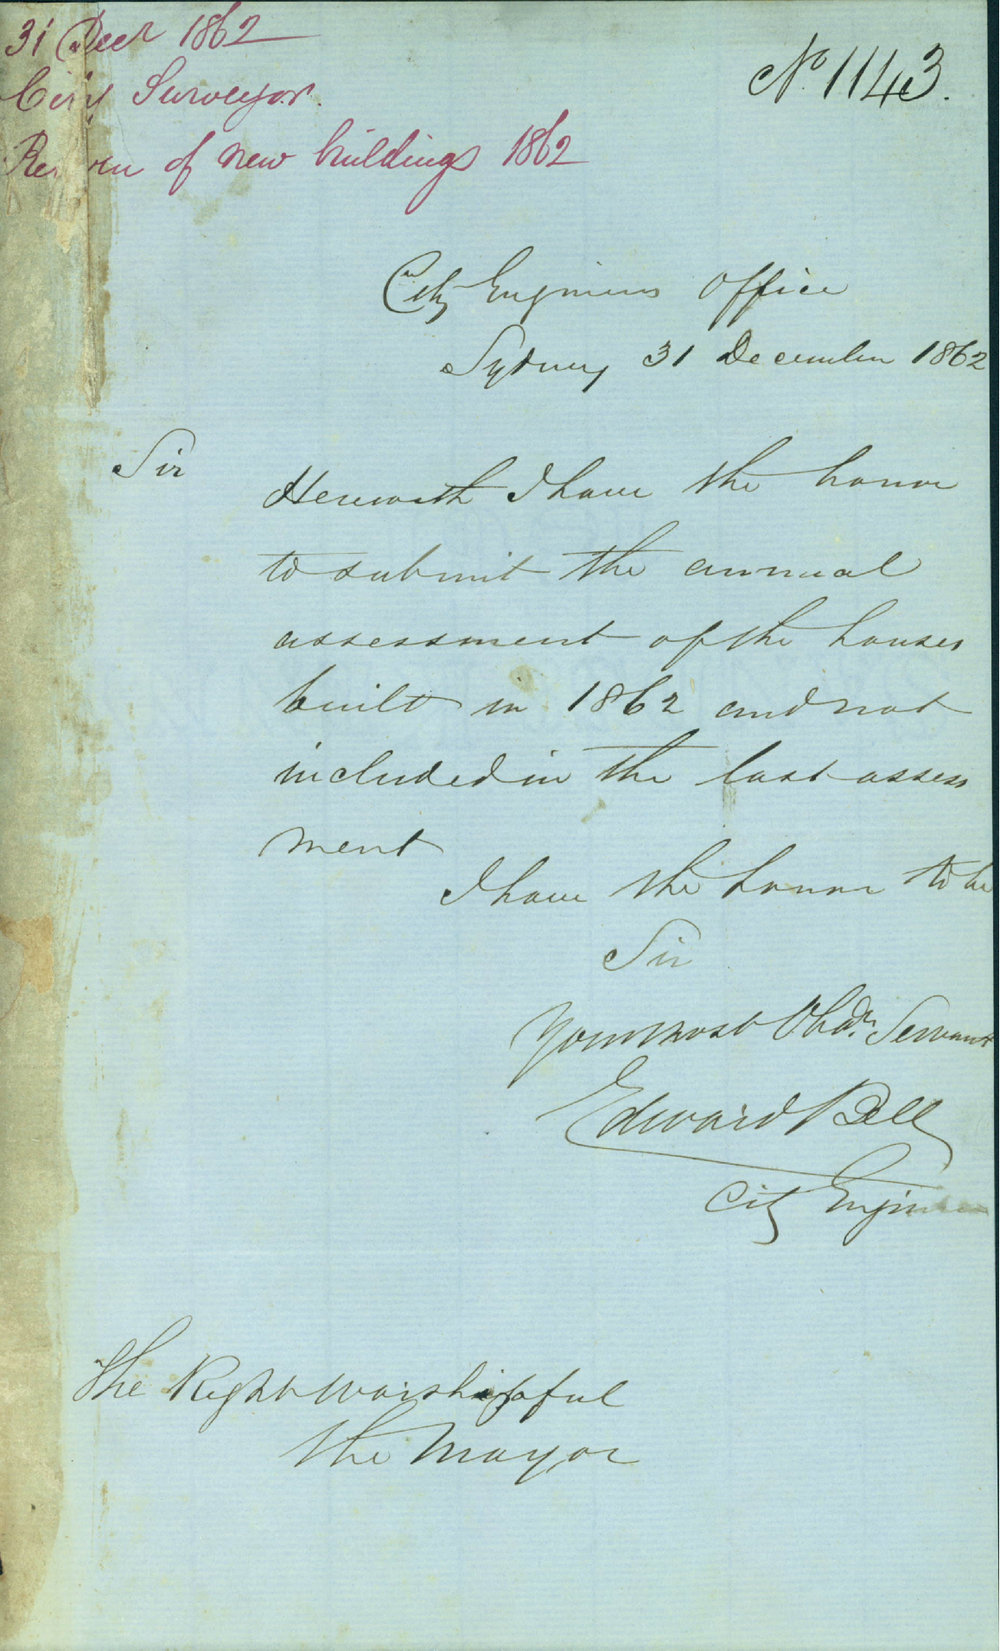 31 Decr 1862
City Surveyor.
Return of new buildings 1862
No. 1143.
City Engineers Office
Sydney 31 December 1862
Sir
Herewith I have the honor
to submit the annual
assessment of the houses
built in 1862 and not
included in the last assess
ment
I have the honor to be
Sir
Your most Obdt. Servant
Edward Bell
City Engineer
The Right Worshipful
The Mayor